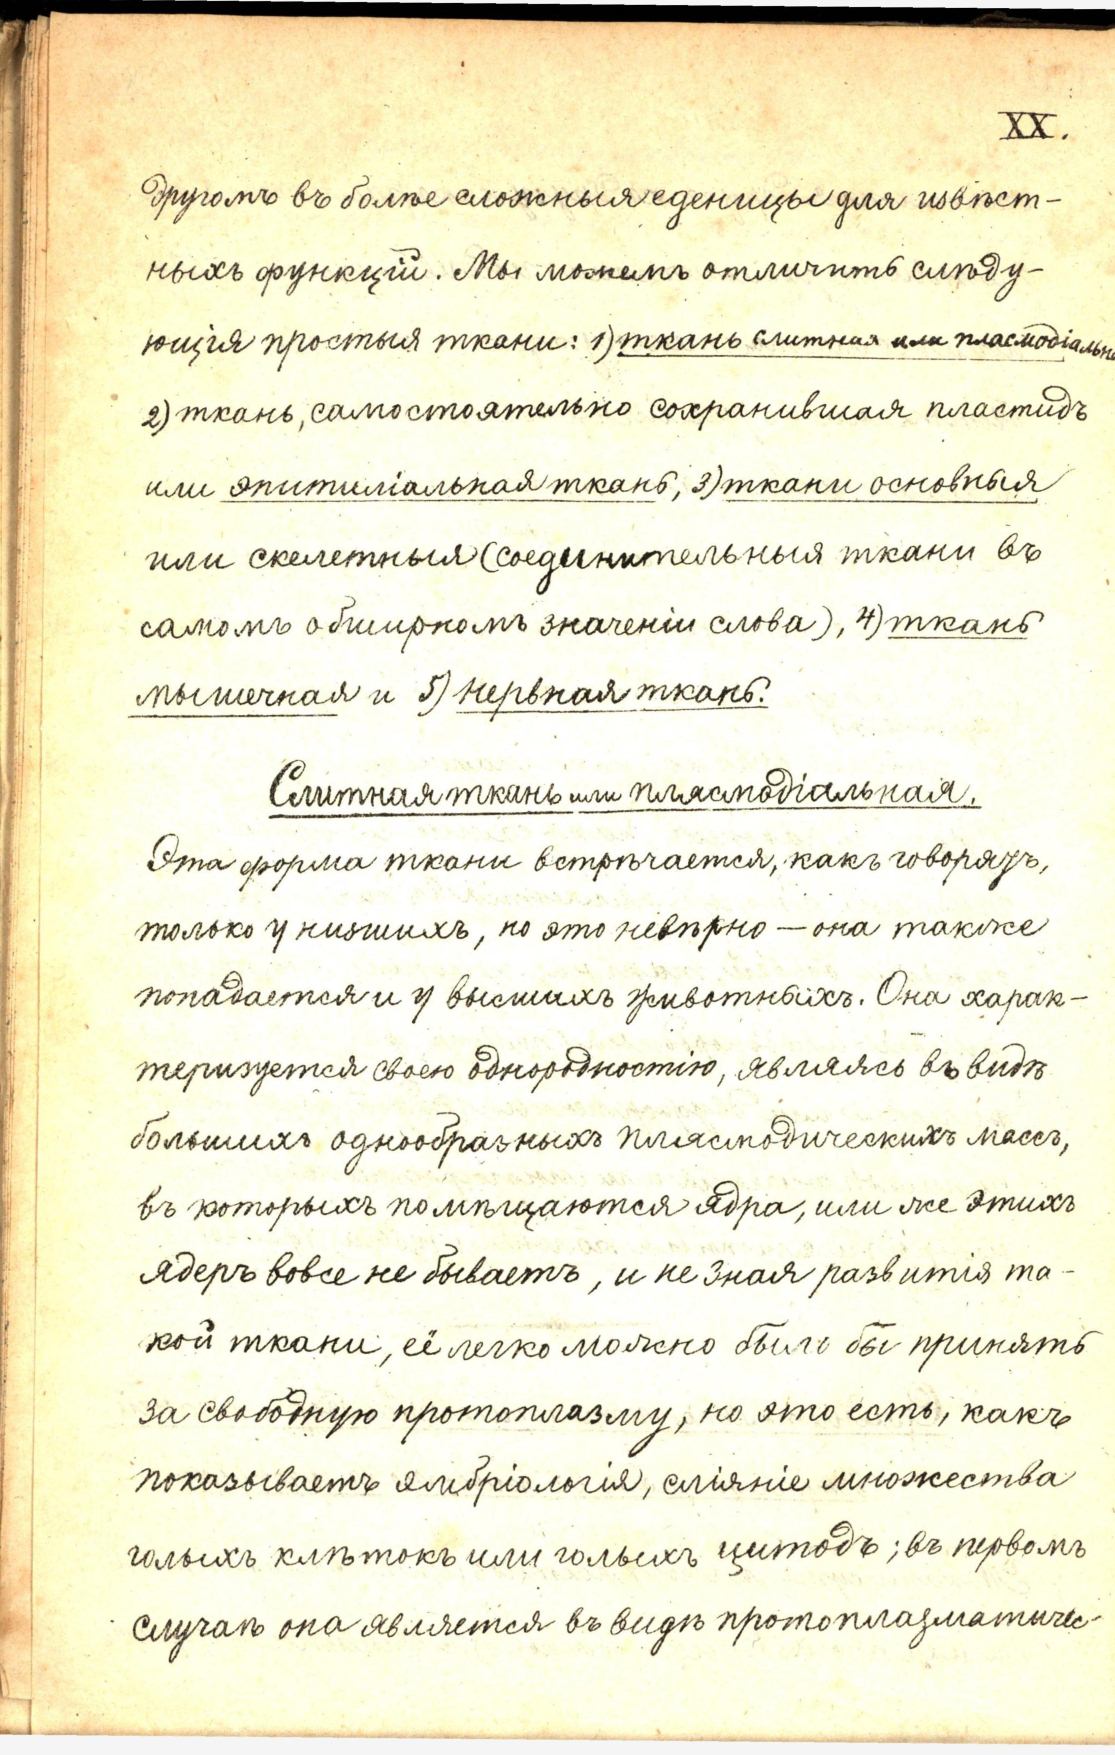 XX.
другомъ въ болѣе сложныя еденицы для извѣст-
ныхъ функцій. Мы можемъ отличить слѣду-
ющія простыя ткани: 1) ткань слитная или пласмодіальна
2) ткань, самостоятельно сохранившая пластидъ
или эпителіальная ткань, 3) ткани основныя
или скелетныя (соединительныя ткани въ
самомъ обширномъ значеніи слова), 4) ткань
мышечная и 5) нервная ткань.
Слитная ткань или плясмодіальная.
Эта форма ткани встрѣчается, какъ говорятъ,
только у низшихъ, но это невѣрно — она также
попадается и у высшихъ животныхъ. Она харак-
теризуется своею однородностію, являясь въ видѣ
большихъ однообразныхъ плясмодическихъ массъ,
въ которыхъ помѣщаются ядра, или же этихъ
ядеръ вовсе не бываетъ, и не зная развитія та-
кой ткани, её легко можно былъ бы принять
за свободную протоплазму, но это есть, какъ
показываетъ эмбріологія, сліяніе множества
голыхъ клѣтокъ или голыхъ цитодъ; въ первомъ
случаѣ она является въ видѣ протоплазматичес-